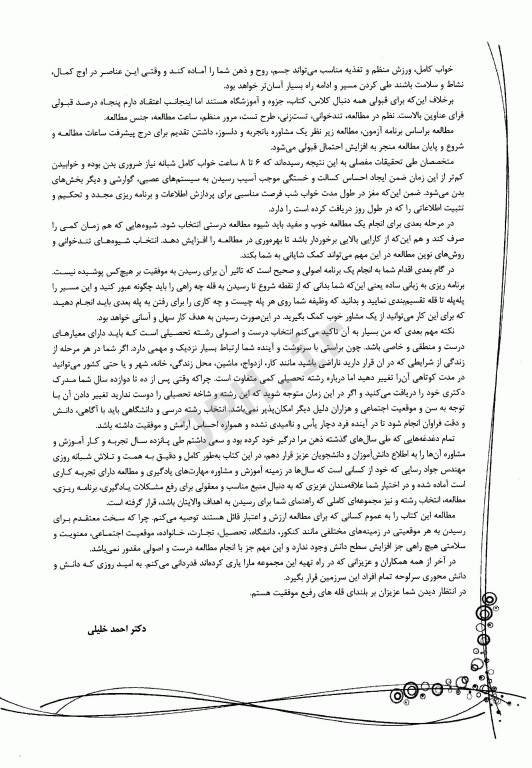 خواب کامل، ورزش منظم و تغذیه مناسب می‌تواند جسم، روح و ذهن شما را آماده کند و وقتی این عناصر در اوج کمال،
نشاط و سلامت باشند طی کردن مسیر و ادامه راه بسیار آسان‌تر خواهد بود.
برخلاف این‌که برای قبولی همه دنبال کلاس، کتاب، جزوه و آموزشگاه هستند اما اینجانب اعتقاد دارم پنجاه درصد قبولی
فرای عناوین بالاست. نظم در مطالعه، تندخوانی، تست‌زنی، طرح تست، مرور منظم، ساعت مطالعه، جنس مطالعه.
مطالعه براساس برنامه آزمون، مطالعه زیر نظر یک مشاوره باتجربه و دلسوز، داشتن تقدیم برای درج پیشرفت ساعات مطالعه و
شروع و پایان مطالعه منجر به افزایش احتمال قبولی می‌شود.
متخصصان طی تحقیقات مفصلی به این نتیجه رسیده‌اند که ۶ تا ۸ ساعت خواب کامل شبانه نیاز ضروری بدن بوده و خوابیدن
کم‌تر از این زمان ضمن ایجاد احساس کسالت و خستگی موجب آسیب رسیدن به سیستم‌های عصبی، گوارشی و دیگر بخش‌های
بدن می‌شود. ضمن این‌که مغز در طول مدت خواب شب فرصت مناسبی برای پردازش اطلاعات و برنامه ریزی مجدد و تحکیم و
تثبیت اطلاعاتی را که در طول روز دریافت کرده است را دارد.
در مرحله بعدی برای انجام یک مطالعه خوب و مفید باید شیوه مطالعه درستی انتخاب شود. شیوه‌هایی که هم زمان کمی را
صرف کند و هم این‌که از کارایی بالایی برخوردار باشد تا بهره‌وری در مطالعه را افزایش دهد. انتخاب شیوه‌های تندخوانی و
روش‌های نوین مطالعه در این مهم می‌تواند کمک شایانی به شما بکند.
در گام بعدی اقدام شما به انجام یک برنامه اصولی و صحیح است که تاثیر آن برای رسیدن به موفقیت بر هیچ‌کس پوشیده نیست.
برنامه ریزی به زبانی ساده یعنی این‌که شما بدانی که از نقطه شروع تا رسیدن به قله چه راهی را باید چگونه عبور کنید و این مسیر را
پله‌پله تا قله تقسیم‌بندی نمایید و بدانید که وظیفه شما روی هر پله چیست و چه کاری را برای رفتن به پله بعدی باید انجام دهید.
که برای این کار می‌توانید از یک مشاور خوب کمک بگیرید. در این‌صورت رسیدن به هدف کار سهل و آسانی خواهد بود.
نکته مهم بعدی که من بسیار به آن تاکید می‌کنم انتخاب درست و اصولی رشته تحصیلی است که باید دارای معیارهای
درست و منطقی و خاصی باشد. چون براستی با سرنوشت و آینده شما ارتباط بسیار نزدیک و مهمی دارد. اگر شما در هر مرحله از
زندگی از شرایطی که در آن قرار دارید ناراضی باشید مانند کار، ازدواج، ماشین، محل زندگی، خانه، شهر و یا حتی کشور می‌توانید
در مدت کوتاهی آن‌را تغییر دهید اما درباره رشته تحصیلی کمی متفاوت است. چراکه وقتی پس از ده تا دوازده سال شما مدرک
دکتری خود را دریافت می‌کنید و اگر در این زمان متوجه شوید که این رشته و شاخه تحصیلی را دوست ندارید تغییر دادن آن با
توجه به سن و موقعیت اجتماعی و هزاران دلیل دیگر امکان‌پذیر نمی‌باشد. انتخاب رشته درسی و دانشگاهی باید با آگاهی، دانش و
دقت فراوان انجام شود تا در آینده فرد دچار یأس و ناامیدی نشده و همواره احساس آرامش و موفقیت داشته باشد.
تمام دغدغه‌هایی که طی سال‌های گذشته ذهن مرا درگیر خود کرده بود و سعی داشتم طی پانزده سال تجربه و کار آموزش و
مشاوره آن‌ها را به اطلاع دانش‌آموزان و دانشجویان عزیز قرار دهم، در این کتاب به‌طور کامل و دقیق به همت و تلاش شبانه روزی
مهندس جواد رسایی که خود از کسانی است که سال‌ها در زمینه آموزش و مشاوره مهارت‌های یادگیری و مطالعه دارای تجربه کاری
است آماده شده و در اختیار شما علاقه‌مندان عزیزی که به دنبال منبع مناسب و معقولی برای رفع مشکلات یادگیری، برنامه ریزی،
مطالعه، انتخاب رشته و نیز مجموعه‌ای کاملی که راهنمای شما برای رسیدن به اهداف والایتان باشد، قرار گرفته است.
مطالعه این کتاب را به عموم کسانی که برای مطالعه ارزش و اعتبار قائل هستند توصیه می‌کنم. چرا که سخت معتقدم برای
رسیدن به هر موقعیتی در زمینه‌های مختلفی مانند کنکور، دانشگاه، تحصیل، تجارت، خانواده، موقعیت اجتماعی، معنویت و
سلامتی هیچ راهی جز افزایش سطح دانش وجود ندارد و این مهم جز با انجام مطالعه درست و اصولی مقدور نمی‌باشد.
در آخر از همه همکاران و عزیزانی که در راه تهیه این مجموعه مارا یاری کرده‌اند قدردانی می‌کنم. به امید روزی که دانش و
دانش محوری سرلوحه تمام افراد این سرزمین قرار بگیرد.
در انتظار دیدن شما عزیزان بر بلندای قله های رفیع موفقیت هستم.
دکتر احمد خلیلی